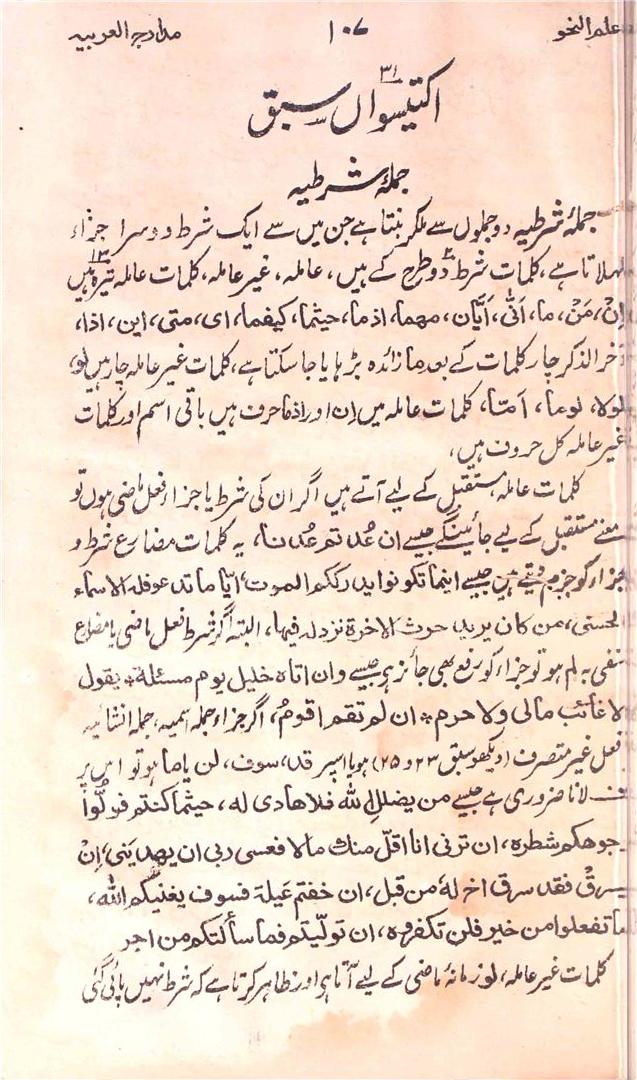 علم النحو ۱۰۷ مدارج العربیہ
۳۱
اکتیسواں سبق
جملۂ شرطیہ
جملۂ شرطیہ دو جملوں سے ملکر بنتا ہے جن میں سے ایک شرط دوسرا جزاء
کہلاتا ہے، کلمات شرط دو طرح کے ہیں، عاملہ، غیر عاملہ، کلمات عاملہ تیرہ ۱۳ ہیں
اِنْ، مَنْ، ما، اَنّٰی، اَیَّان، مهما، اذما، حیثما، کیفما، ای، متی، این، اذا،
آخر الذکر چار کلمات کے بعد ما زائدہ بڑہایا جا سکتا ہے، کلمات غیر عاملہ چار ہیں لو،
لولا، لوما، امّا، کلمات عاملہ میں اِن اور اذما حرف ہیں باقی اسم اور کلمات
غیر عاملہ کل حروف ہیں،
کلمات عاملہ مستقبل کے لیے آتے ہیں اگر ان کی شرط یا جزاء فعل ماضی ہوں تو
معنے مستقبل کے لیے جائینگے جیسے ان عُدتم عُدنا، یہ کلمات مضارع شرط و
جزاء کو جزم دیتے ہیں جیسے اینما تکونوا یدرککم الموت، ایّا ما تدعوا فله الاسماء
الحسنی، من کان یرید حرث الاخرة نزد له فیها، البتہ اگر شرط فعل ماضی یا مضارع
منفی بہ لم ہو تو جزاء کو رفع بھی جائز ہے جیسے وان اتاه خلیل یوم مسئلة * یقول
لا غائب مالی ولا حرم * ان لم تقم اقومُ، اگر جزاء جملہ اسمیہ، جملہ انشائیہ
فعل غیر متصرف (دیکھو سبق ۲۳ و ۲۵) ہو یا اسپر قد، سوف، لن یا ما ہو تو اس پر
ف لانا ضروری ہے جیسے من یضلل الله فلا هادی له، حیثما کنتم فولّوا
وجوهکم شطره، ان ترنی انا اقلّ منك مالا فعسی ربی ان یهدینی، اِنْ
یسرقْ فقد سرق اخ لهٗ من قبل، ان خفتم عَیلة فسوف یغنیکم الله،
ما تفعلوا من خیر فلن تکفروه، ان تولّیتم فما سألتکم من اجر
کلمات غیر عاملہ، لو زمانۂ ماضی کے لیے آتا ہے اور ظاہر کرتا ہے کہ شرط نہیں پائی گئی